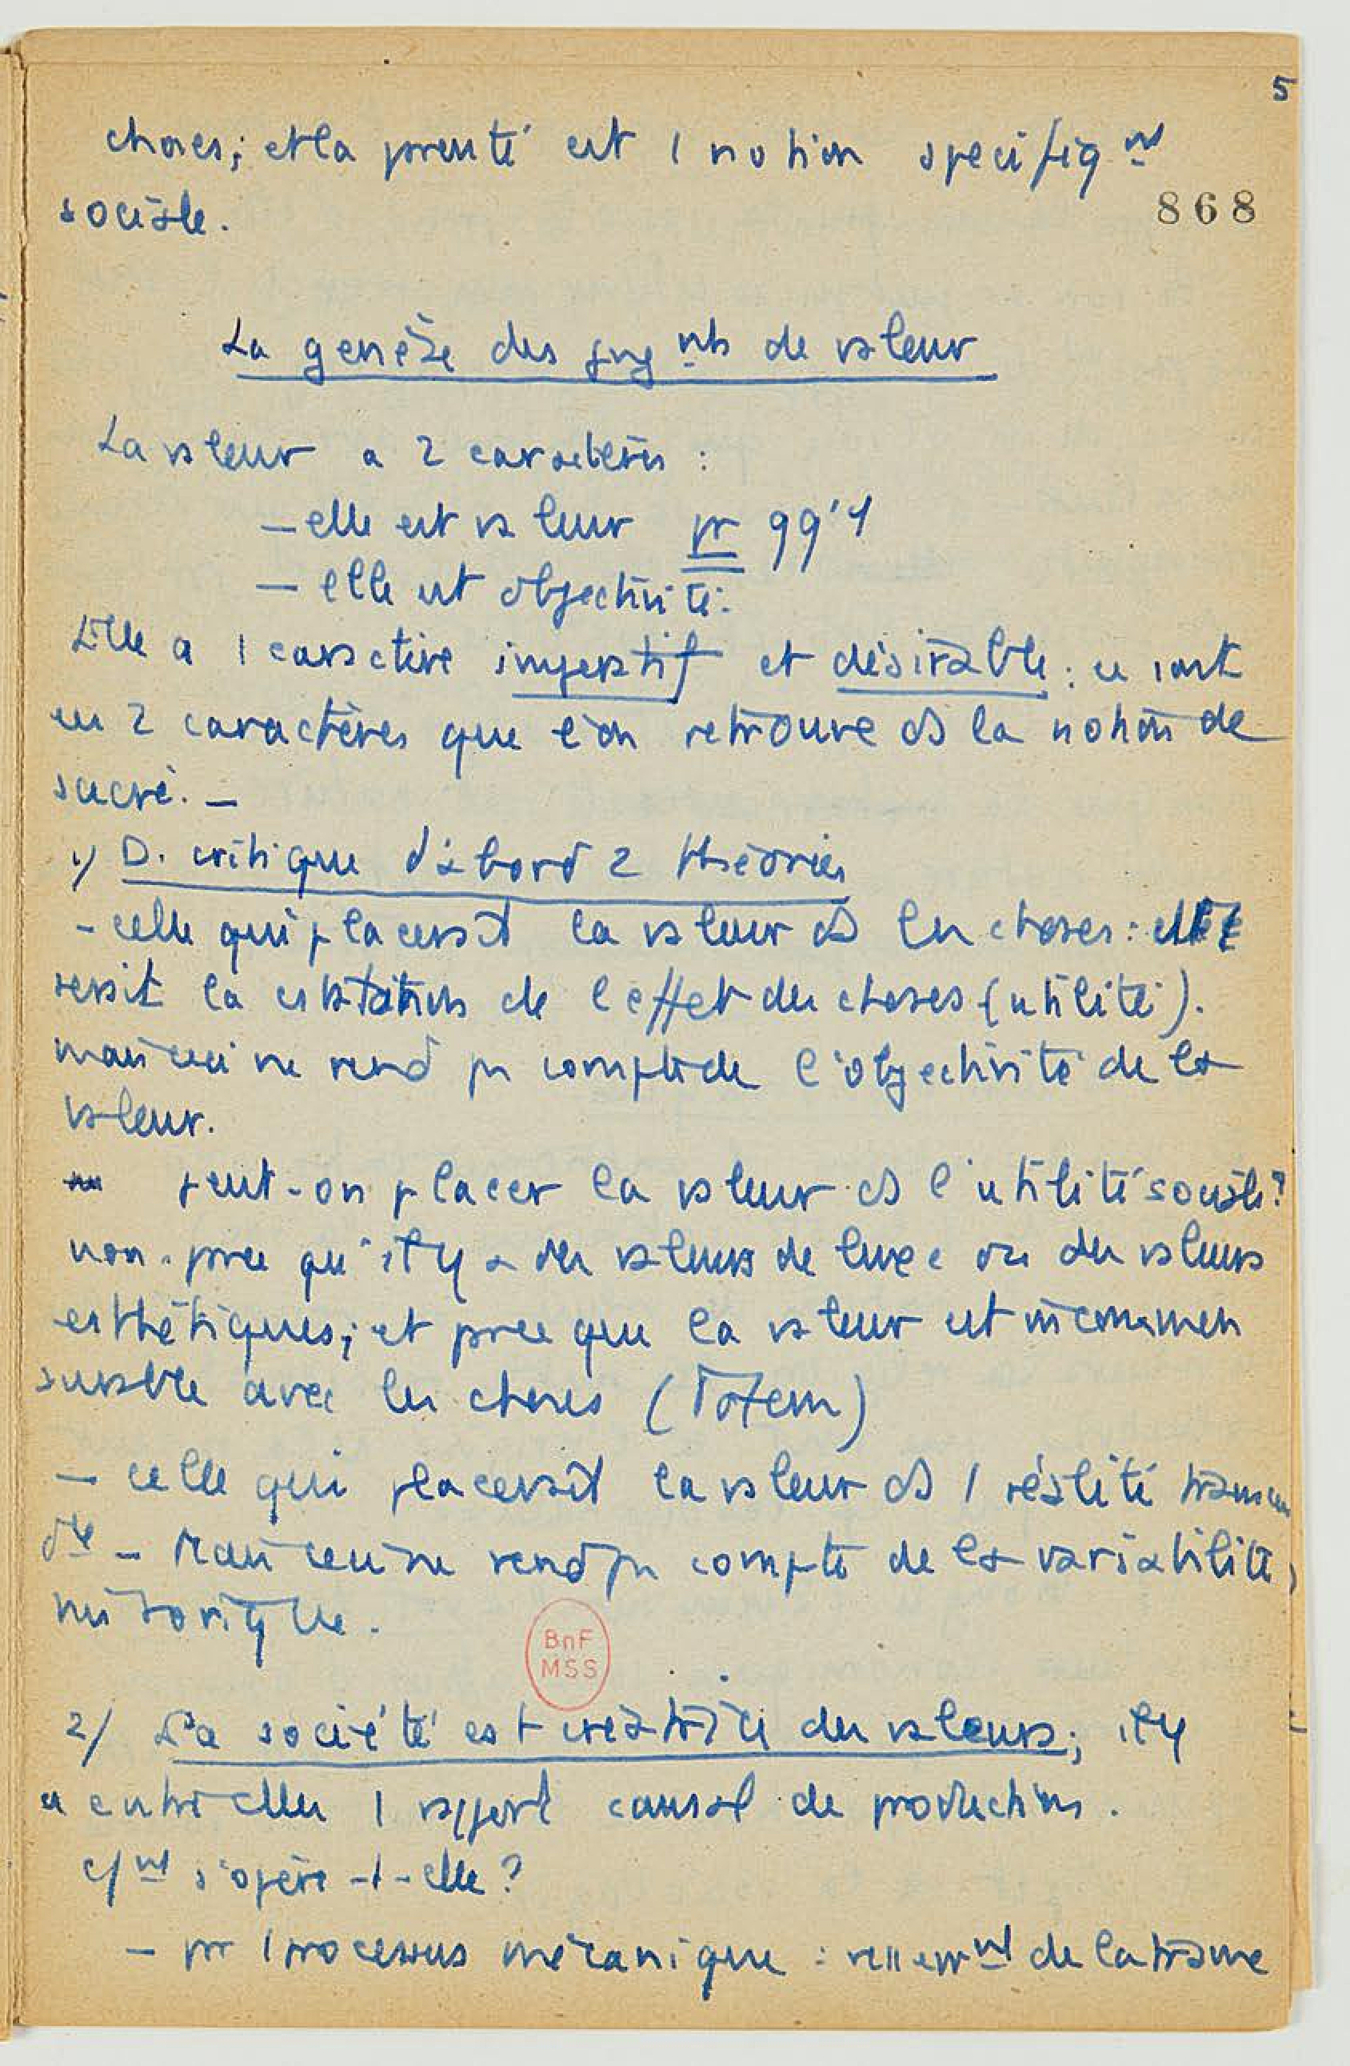 5
choses ; et la parenté est 1 notion spécifiq nt
868
sociale.
La genèse des jug nts de valeur
La valeur a 2 caractères :
– elle est valeur pr qq'1
– elle est objectivité.
Elle a 1 caractère impératif et désirable : ce sont
ces 2 caractères que l'on retrouve ds la notion de
sacré. –
1/ D. critique d'abord 2 théories
- celle qui placerait la valeur ds les choses : elle
serait la constatation de l'effet des choses (utilité).
mais ceci ne rend pas compte de l'objectivité de la
valeur.
peut-on placer la valeur ds l'utilité sociale ?
non. parce qu'il y a des valeurs de luxe ou des valeurs
esthétiques ; et parce que la valeur est incommen
surable avec les choses (Totem)
– celle qui placerait la valeur ds 1 réalité transcen
dte – Mais ceci ne rend pas compte de la variabilité
historique.
BnF
MSS
2/ La société est créatrice des valeurs ; il y
a entre elles 1 rapport causal de production.
c/ nt s'opère-t-elle ?
– par 1 processus mécanique : resserr nt de la trame